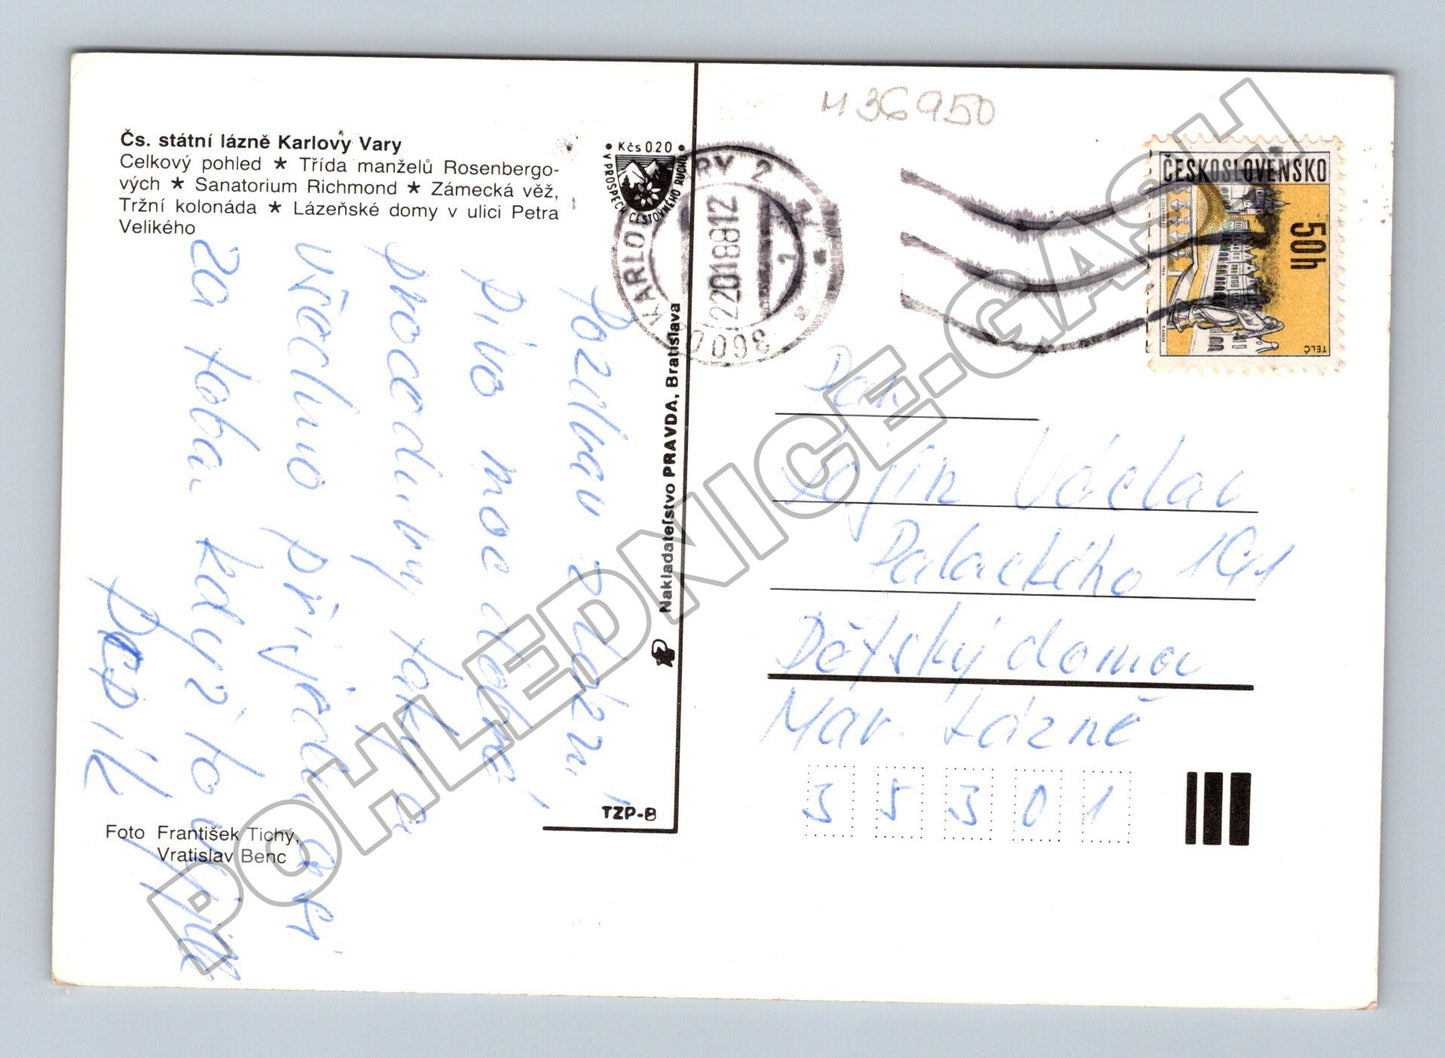 Čs. státní lázně Karlovy Vary
Celkový pohled ★ Třída manželů Rosenbergo-
vých ★ Sanatorium Richmond ★ Zámecká věž,
Tržní kolonáda ★ Lázeňské domy v ulici Petra
Velikého
Pozdrav
pivo moc dobré,
procedury také
všechno
za tebou když to
Foto František Tichý,
Vratislav Benc
Kčs 0.20
V PROSPĚCH CESTOVNÍHO RUCHU
Nakladateľstvo PRAVDA, Bratislava
TZP-B
M 36950
KARLOVY VARY 2
22.01.88 12
360 02
ČESKOSLOVENSKO
50h
TELČ
Pan
Václav
Palackého 191
Dětský domov
Mar. Lázně
3 5 3 0 1
POHLEDNICE-GASH